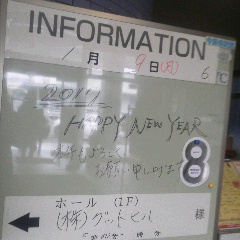 INFORMATION
1月9日(月) 6℃
2017
HAPPY NEW YEAR
本年もよろしく
お願い申し上げます
8
ホール (1F)
(株)グットヒル 様